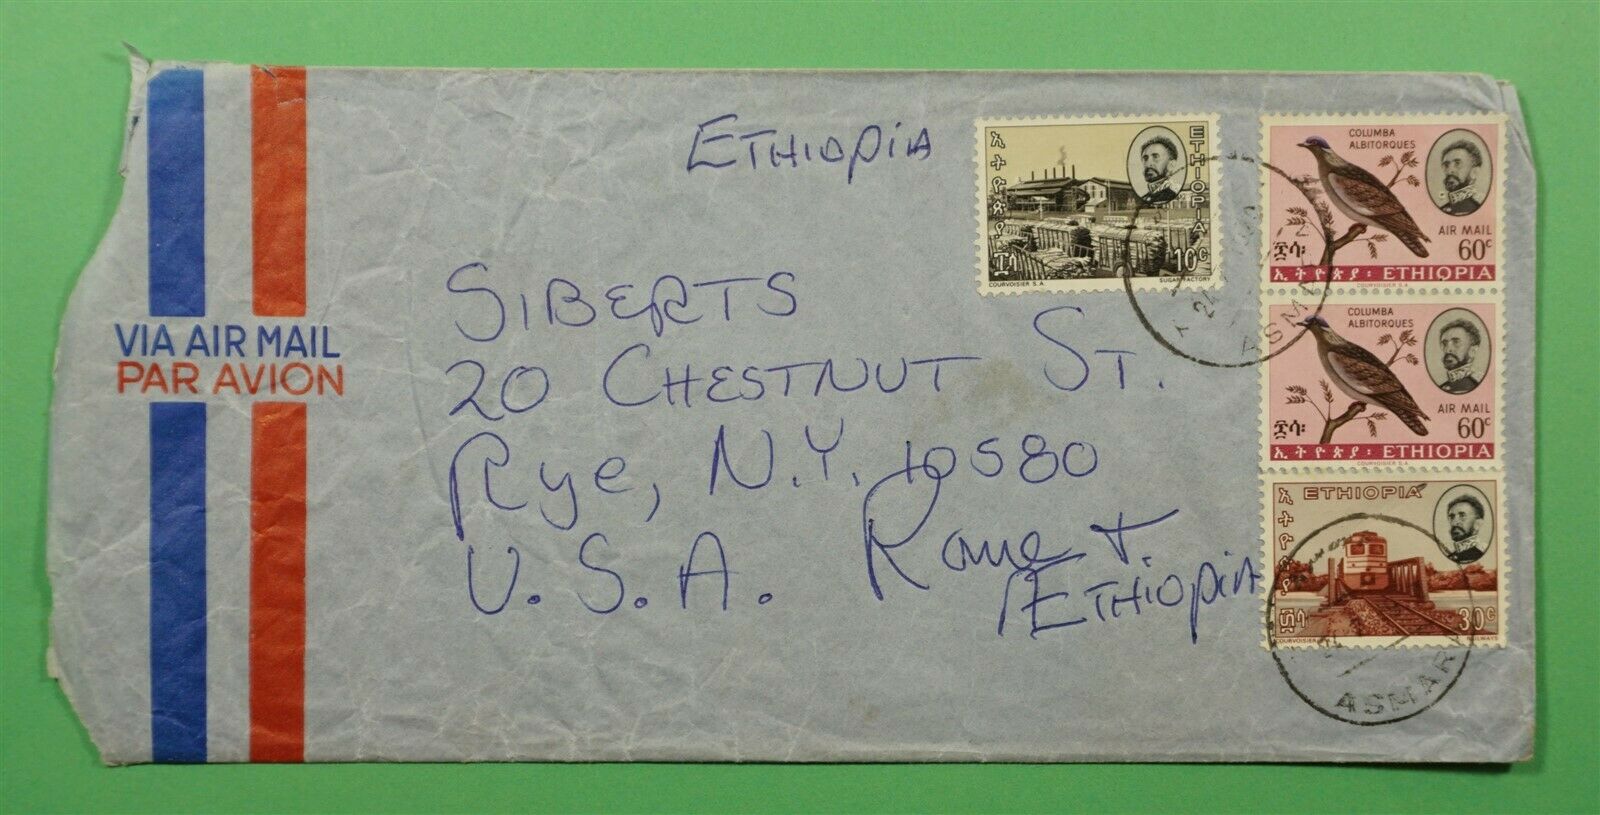 ETHIOPIA
VIA AIR MAIL
PAR AVION
SIBERTS
20 CHESTNUT ST.
Rye, N.Y. 10580
U.S.A.
ETHIOPIA
ኢትዮጵያ
ETHIOPIA
10c
COURVOISIER S.A.
SUGAR FACTORY
COLUMBA
ALBITORQUES
AIR MAIL
60c
ኢትዮጵያ፡ ETHIOPIA
COURVOISIER S.A.
COLUMBA
ALBITORQUES
AIR MAIL
60c
ኢትዮጵያ፡ ETHIOPIA
COURVOISIER S.A.
ETHIOPIA
ኢትዮጵያ
30c
COURVOISIER
RAILWAYS
ASMARA
ASMARA